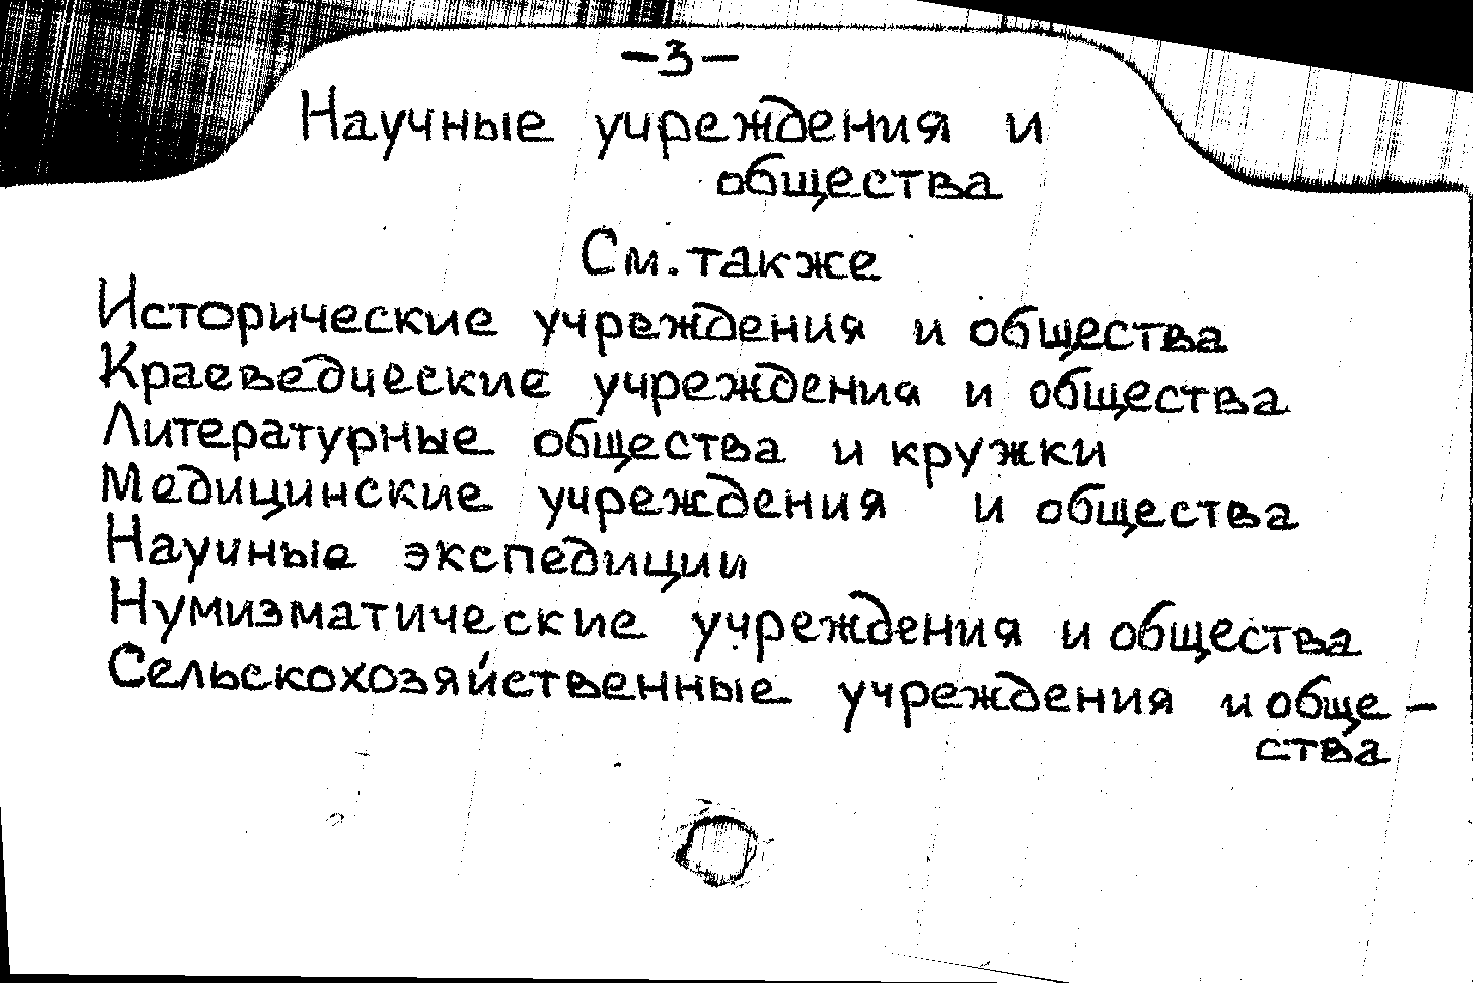 -3-
Научные учреждения и
общества
См. также
Исторические учреждения и общества
Краеведческие учреждения и общества
Литературные общества и кружки
Медицинские учреждения и общества
Научные экспедиции
Нумизматические учреждения и общества
Сельскохозяйственные учреждения и обще-
ства